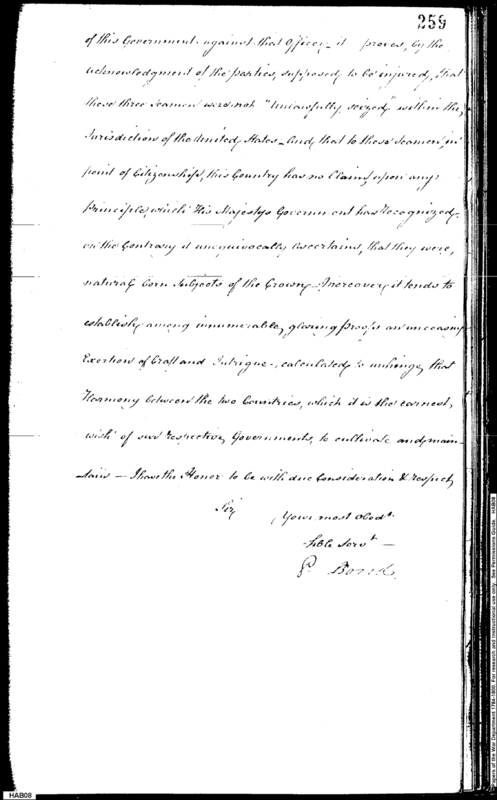 259
of this Government against that Officer - it proves, by the
acknowledgment of the parties, supposed to be injured, that
these three Seamen were not "unlawfully seized" within the
Jurisdiction of the United States - And, that to these Seamen, in
point of Citizenship, this Country has no Claim, upon any
Principle, which His Majesty's Government has Recognized -
on the Contrary it unequivocally ascertains, that they were,
natural born Subjects of the Crown - Moreover, it tends to
establish, among innumerable, glaring proofs an unceasing
Exertion of Craft and Intrigue -, calculated to unhinge, that
Harmony between the two Countries, which it is the earnest,
wish of our respective Governments, to cultivate and, main-
-tain - I have the Honor to be with due Consideration & respect,
Sir,
Your most Obedt.
-hble Servt. -
P. Bond.
HAB08
Papers of the War Department 1784-1800. For research and instructional use only. See Permissions Guide. HAB08